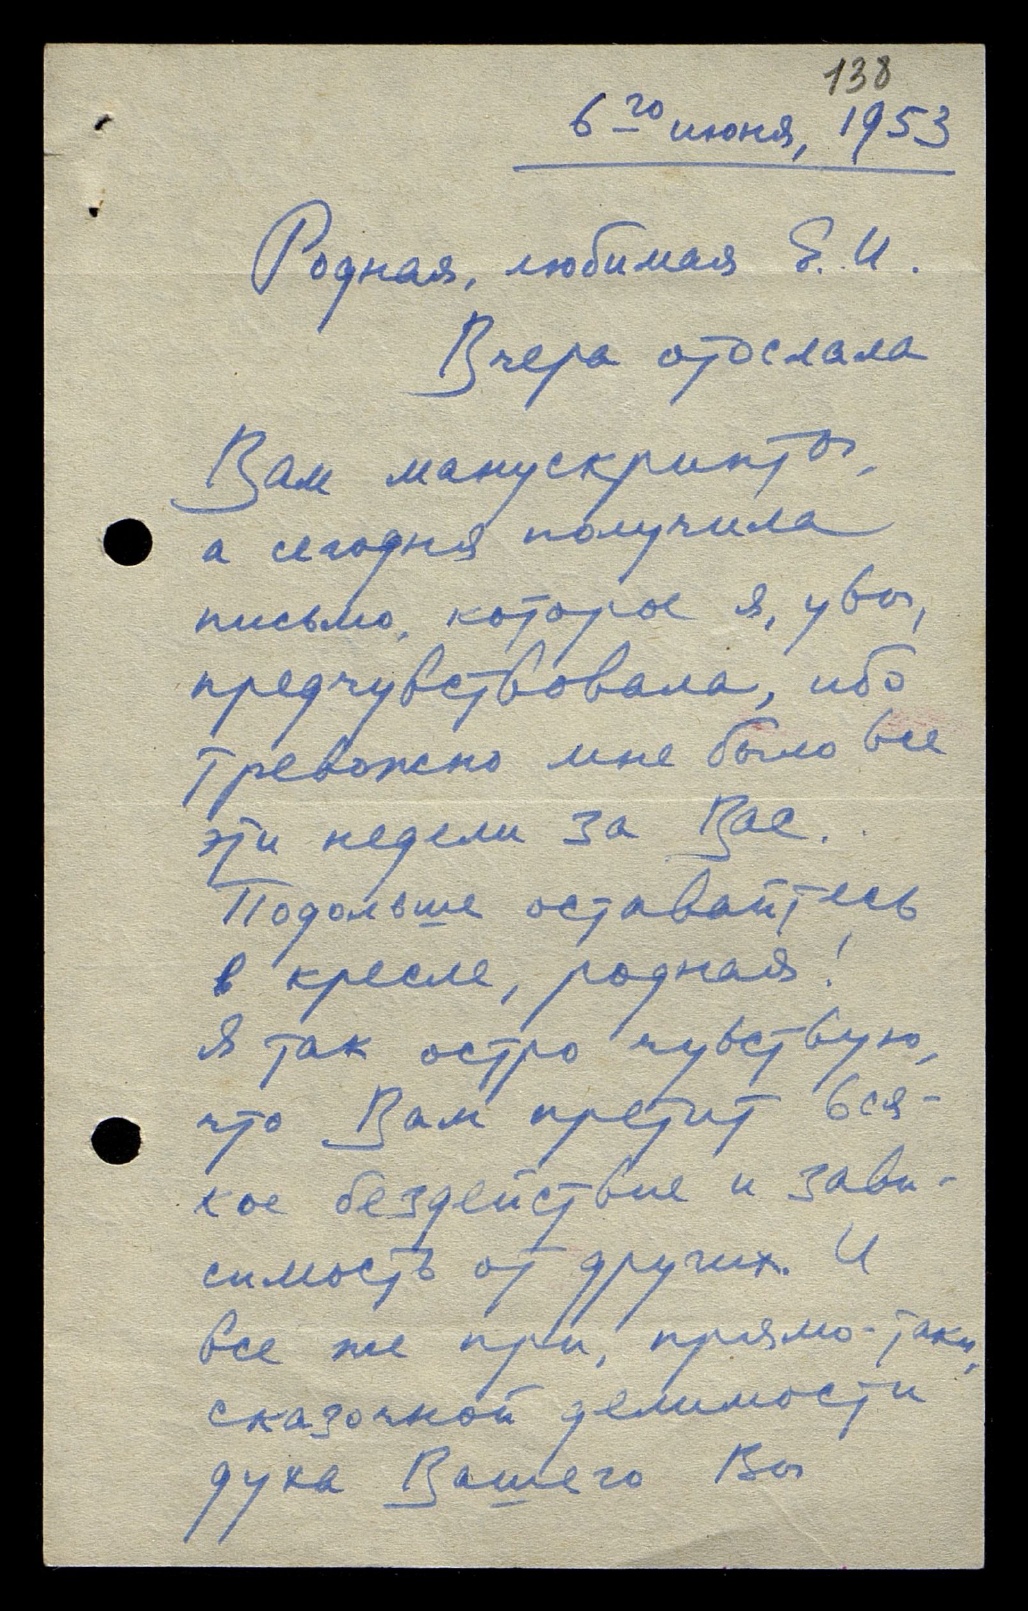 138
6го июня, 1953
Родная, любимая Е. И.
Вчера отослала
Вам манускрипты,
а сегодня получила
письмо, которое я, увы,
предчувствовала, ибо
тревожно мне было все
эти недели за Вас.
Подольше оставайтесь
в кресле, родная!
Я так остро чувствую,
что Вам претит вся-
кое бездействие и зави-
симость от других. И
все же при, прямо-таки,
сказочной делимости
духа Вашего Вы